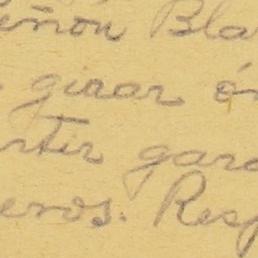 eñon Bla
girar ór
rtir gara
eros. Resp